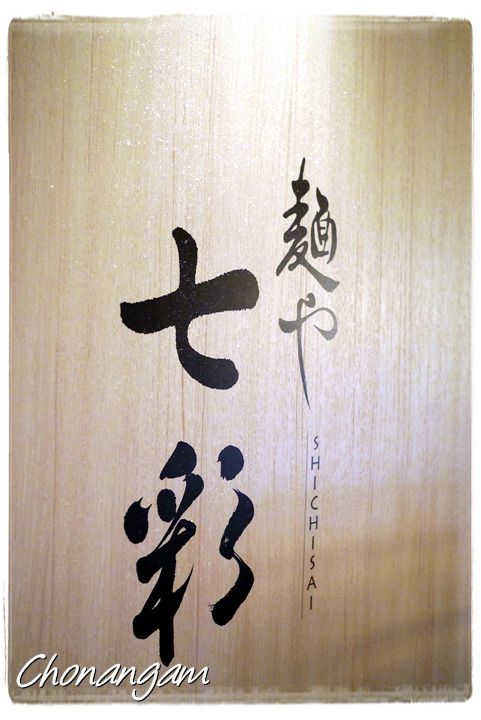 麺や
七彩
SHICHISAI
Chonangam